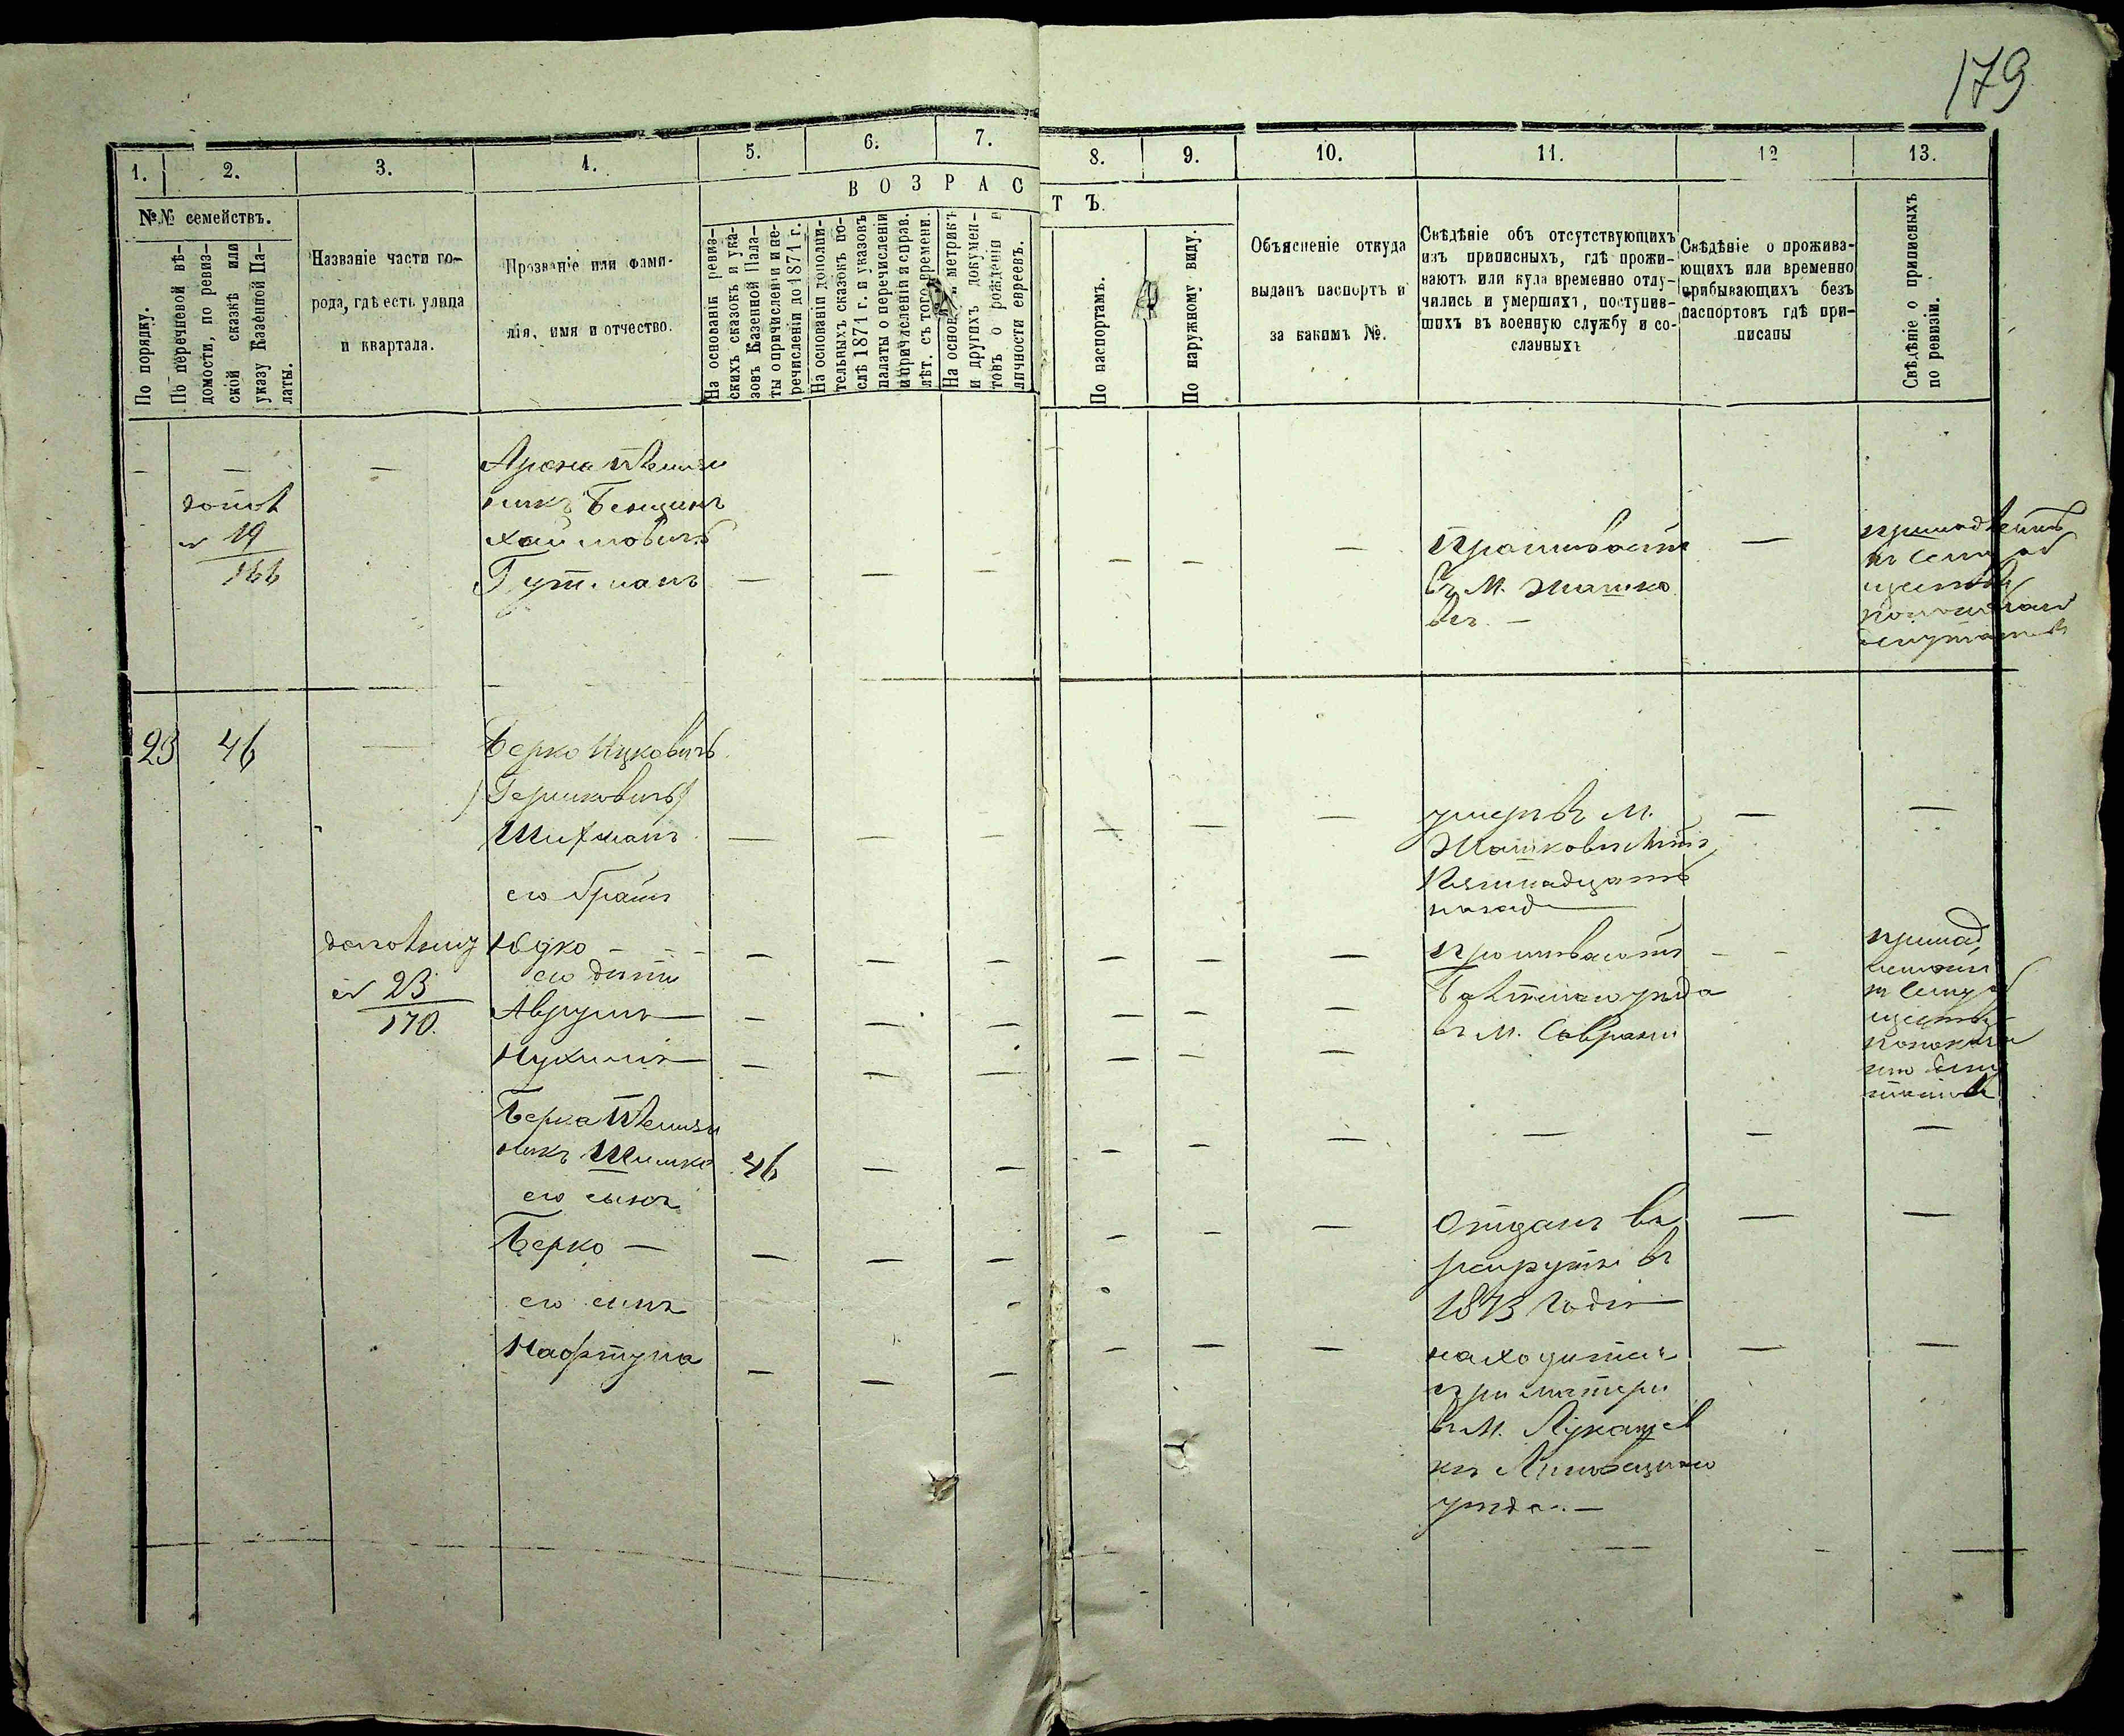 179
1. 2. 3. 4. 5. 6. 7. 8. 9. 10. 11. 12 13.
ВОЗРАСТЪ.
№№ семействъ.
По порядку.
По перечневой вѣ-
домости, по ревиз-
ской сказкѣ или
указу Казенной Па-
латы.
Названіе части го-
рода, гдѣ есть улица
и квартала.
Прозваніе или фами-
лія, имя и отчество.
На основаніи ревиз-
скихъ сказокъ и ука-
зовъ Казенной Пала-
ты о причисленіи и пе-
речисленіи до 1871 г.
На основаніи дополни-
тельныхъ сказокъ по-
слѣ 1871 г. и указовъ
палаты о перечисленіи
и причисленіи и справ.
лѣт. съ того времени.
На основ. метрикъ
и другихъ докумен-
товъ о рожденіи и
личности евреевъ.
По паспортамъ.
По наружному виду.
Объясненіе откуда
выданъ паспортъ и
за какимъ №.
Свѣдѣніе объ отсутствующихъ
изъ приписныхъ, гдѣ прожи-
ваютъ или куда временно отлу-
чились и умершихъ, поступив-
шихъ въ военную службу и со-
сланныхъ
Свѣдѣніе о прожива-
ющихъ или временно
прибывающихъ безъ
паспортовъ гдѣ при-
писаны
Свѣдѣніе о приписныхъ
по ревизіи.
— — —
19
166
Арона Племян
никъ Бенцинъ
Хаимовичъ
Гутманъ — — — — — —
Проживаетъ
въ М. Жашко
вѣ. —
—
23 46 —
Берко Ицковичъ
/Гершковичъ/
Шихманъ — — — — — —
умеръ въ М.
Жашковѣ лѣтъ
Пятнадцать
назадъ —
— —
его братъ
23
170.
Юдко — — — — — — —
его дѣти
Аврумъ — — — — — — —
Нухимъ — — — — — —
проживаютъ
Балтскаго уѣзда
въ М. Саврани
Берка Племян
никъ Шимко 46 — — — — — — — —
его сынъ
Берко — — — — — — —
Отданъ въ
рекруты въ
1873 годѣ —
— —
его сынъ
Нафтула — — — — — —
находится
при матери
въ М. Лукашев
кѣ Липовецкаго
уѣзда. —
— —